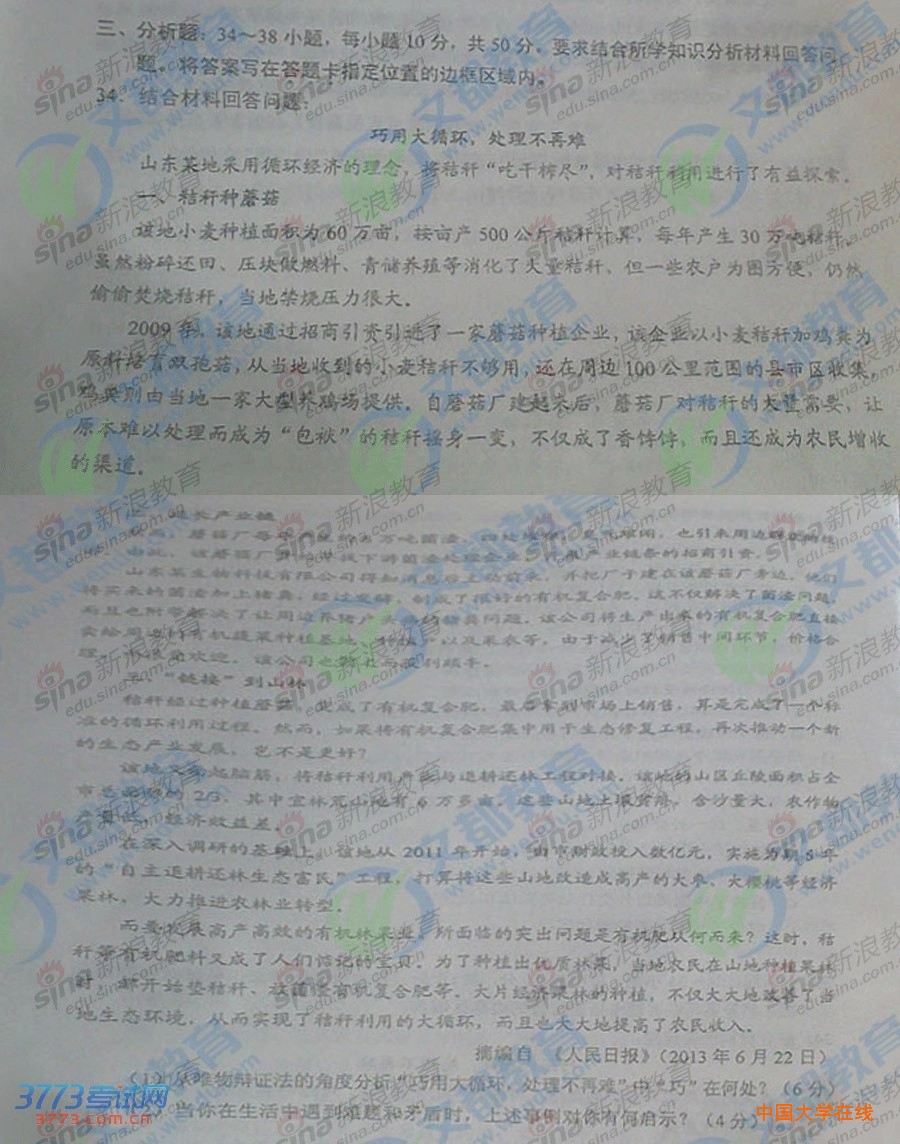 三、分析题：34～38小题，每小题10分，共50分。要求结合所学知识分析材料回答问
题。将答案写在答题卡指定位置的边框区域内。
34．结合材料回答问题：
巧用大循环，处理不再难
山东某地采用循环经济的理念，将秸秆“吃干榨尽”，对秸秆利用进行了有益探索。
一、秸秆种蘑菇
该地小麦种植面积为60万亩，按亩产500公斤秸秆计算，每年产生30万吨秸秆。
虽然粉碎还田、压块做燃料、青储养殖等消化了大量秸秆，但一些农户为图方便，仍然
偷偷焚烧秸秆，当地禁烧压力很大。
2009年，该地通过招商引资引进了一家蘑菇种植企业，该企业以小麦秸秆加鸡粪为
原料培育双孢菇，从当地收到的小麦秸秆不够用，还在周边100公里范围的县市区收集，
鸡粪则由当地一家大型养鸡场提供。自蘑菇厂建起来后，蘑菇厂对秸秆的大量需要，让
原本难以处理而成为“包袱”的秸秆摇身一变，不仅成了香饽饽，而且还成为农民增收
的渠道。
延长产业链
蘑菇厂每年 万吨菌渣， 也引来周边群众
该蘑菇厂 下游菌渣处理企业， 产业链条的招商引资。
山东某生物科技有限公司得知消息后主动前来，并把厂子建在该蘑菇厂旁边。他们
将买来的菌渣加上猪粪，经过发酵，制成了很好的有机复合肥。这不仅解决了菌渣问题，
而且也附带解决了让周边养猪户头疼的猪粪问题。该公司将生产出来的有机复合肥直接
卖给周边的有机蔬菜种植基地、 以及果农等，由于减少了销售中间环节，价格合
理， 欢迎，该公司也 获利颇丰。
“链接”到山林
秸秆经过种植蘑菇，变成了有机复合肥，最后拿到市场上销售，算是完成了一个标
准的循环利用过程。然而，如果将有机复合肥集中用于生态修复工程，再次推动一个新
的生态产业发展，岂不是更好？
该地又 起脑筋，将秸秆利用产业与退耕还林工程对接。该地的山区丘陵面积占全
市总面积的2/3，其中宜林荒山地有6万多亩。这些山地土壤贫瘠，含沙量大，农作物
产量低，经济效益差。
在深入调研的基础上，该地从2011年开始，由市财政投入数亿元，实施为期5年
的“自主退耕还林生态富民”工程，打算将这些山地改造成高产的大枣、大樱桃等经济
果林，大力推进农林业转型。
而要发展高产高效的有机林果业，所面临的突出问题是有机肥从何而来？这时，秸
秆等有机肥料又成了人们惦记的宝贝。为了种植出优质林果，当地农民在山地种植果林
时，都开始垫秸秆、放菌渣有机复合肥等。大片经济果林的种植，不仅大大地改善了当
地生态环境，从而实现了秸秆利用的大循环，而且也大大地提高了农民收入。
摘编自 《人民日报》（2013年6月22日）
（1）从唯物辩证法的角度分析“巧用大循环，处理不再难”中“巧”在何处？（6分）
当你在生活中遇到难题和矛盾时，上述事例对你有何启示？（4分）
3773考试网
3773.com.cn
中国大学在线
sina新浪教育
edu.sina.com.cn
文都教育